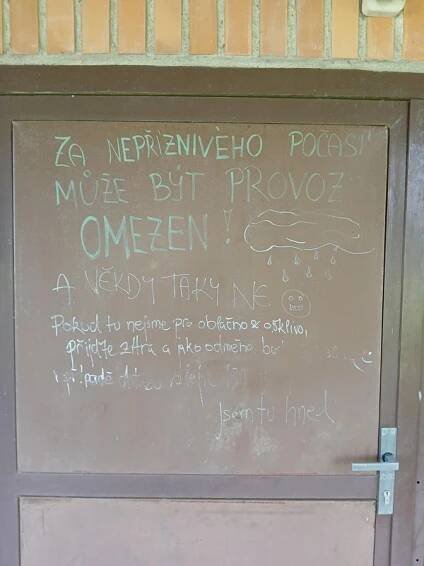 ZA NEPŘIZNIVÉHO POČASÍ
MŮŽE BÝT PROVOZ
OMEZEN!
A NĚKDY TAKY NE
Pokud tu nejsme pro oblačno a ošklivo,
přijďte zítra a jako odměna
Jsem tu hned